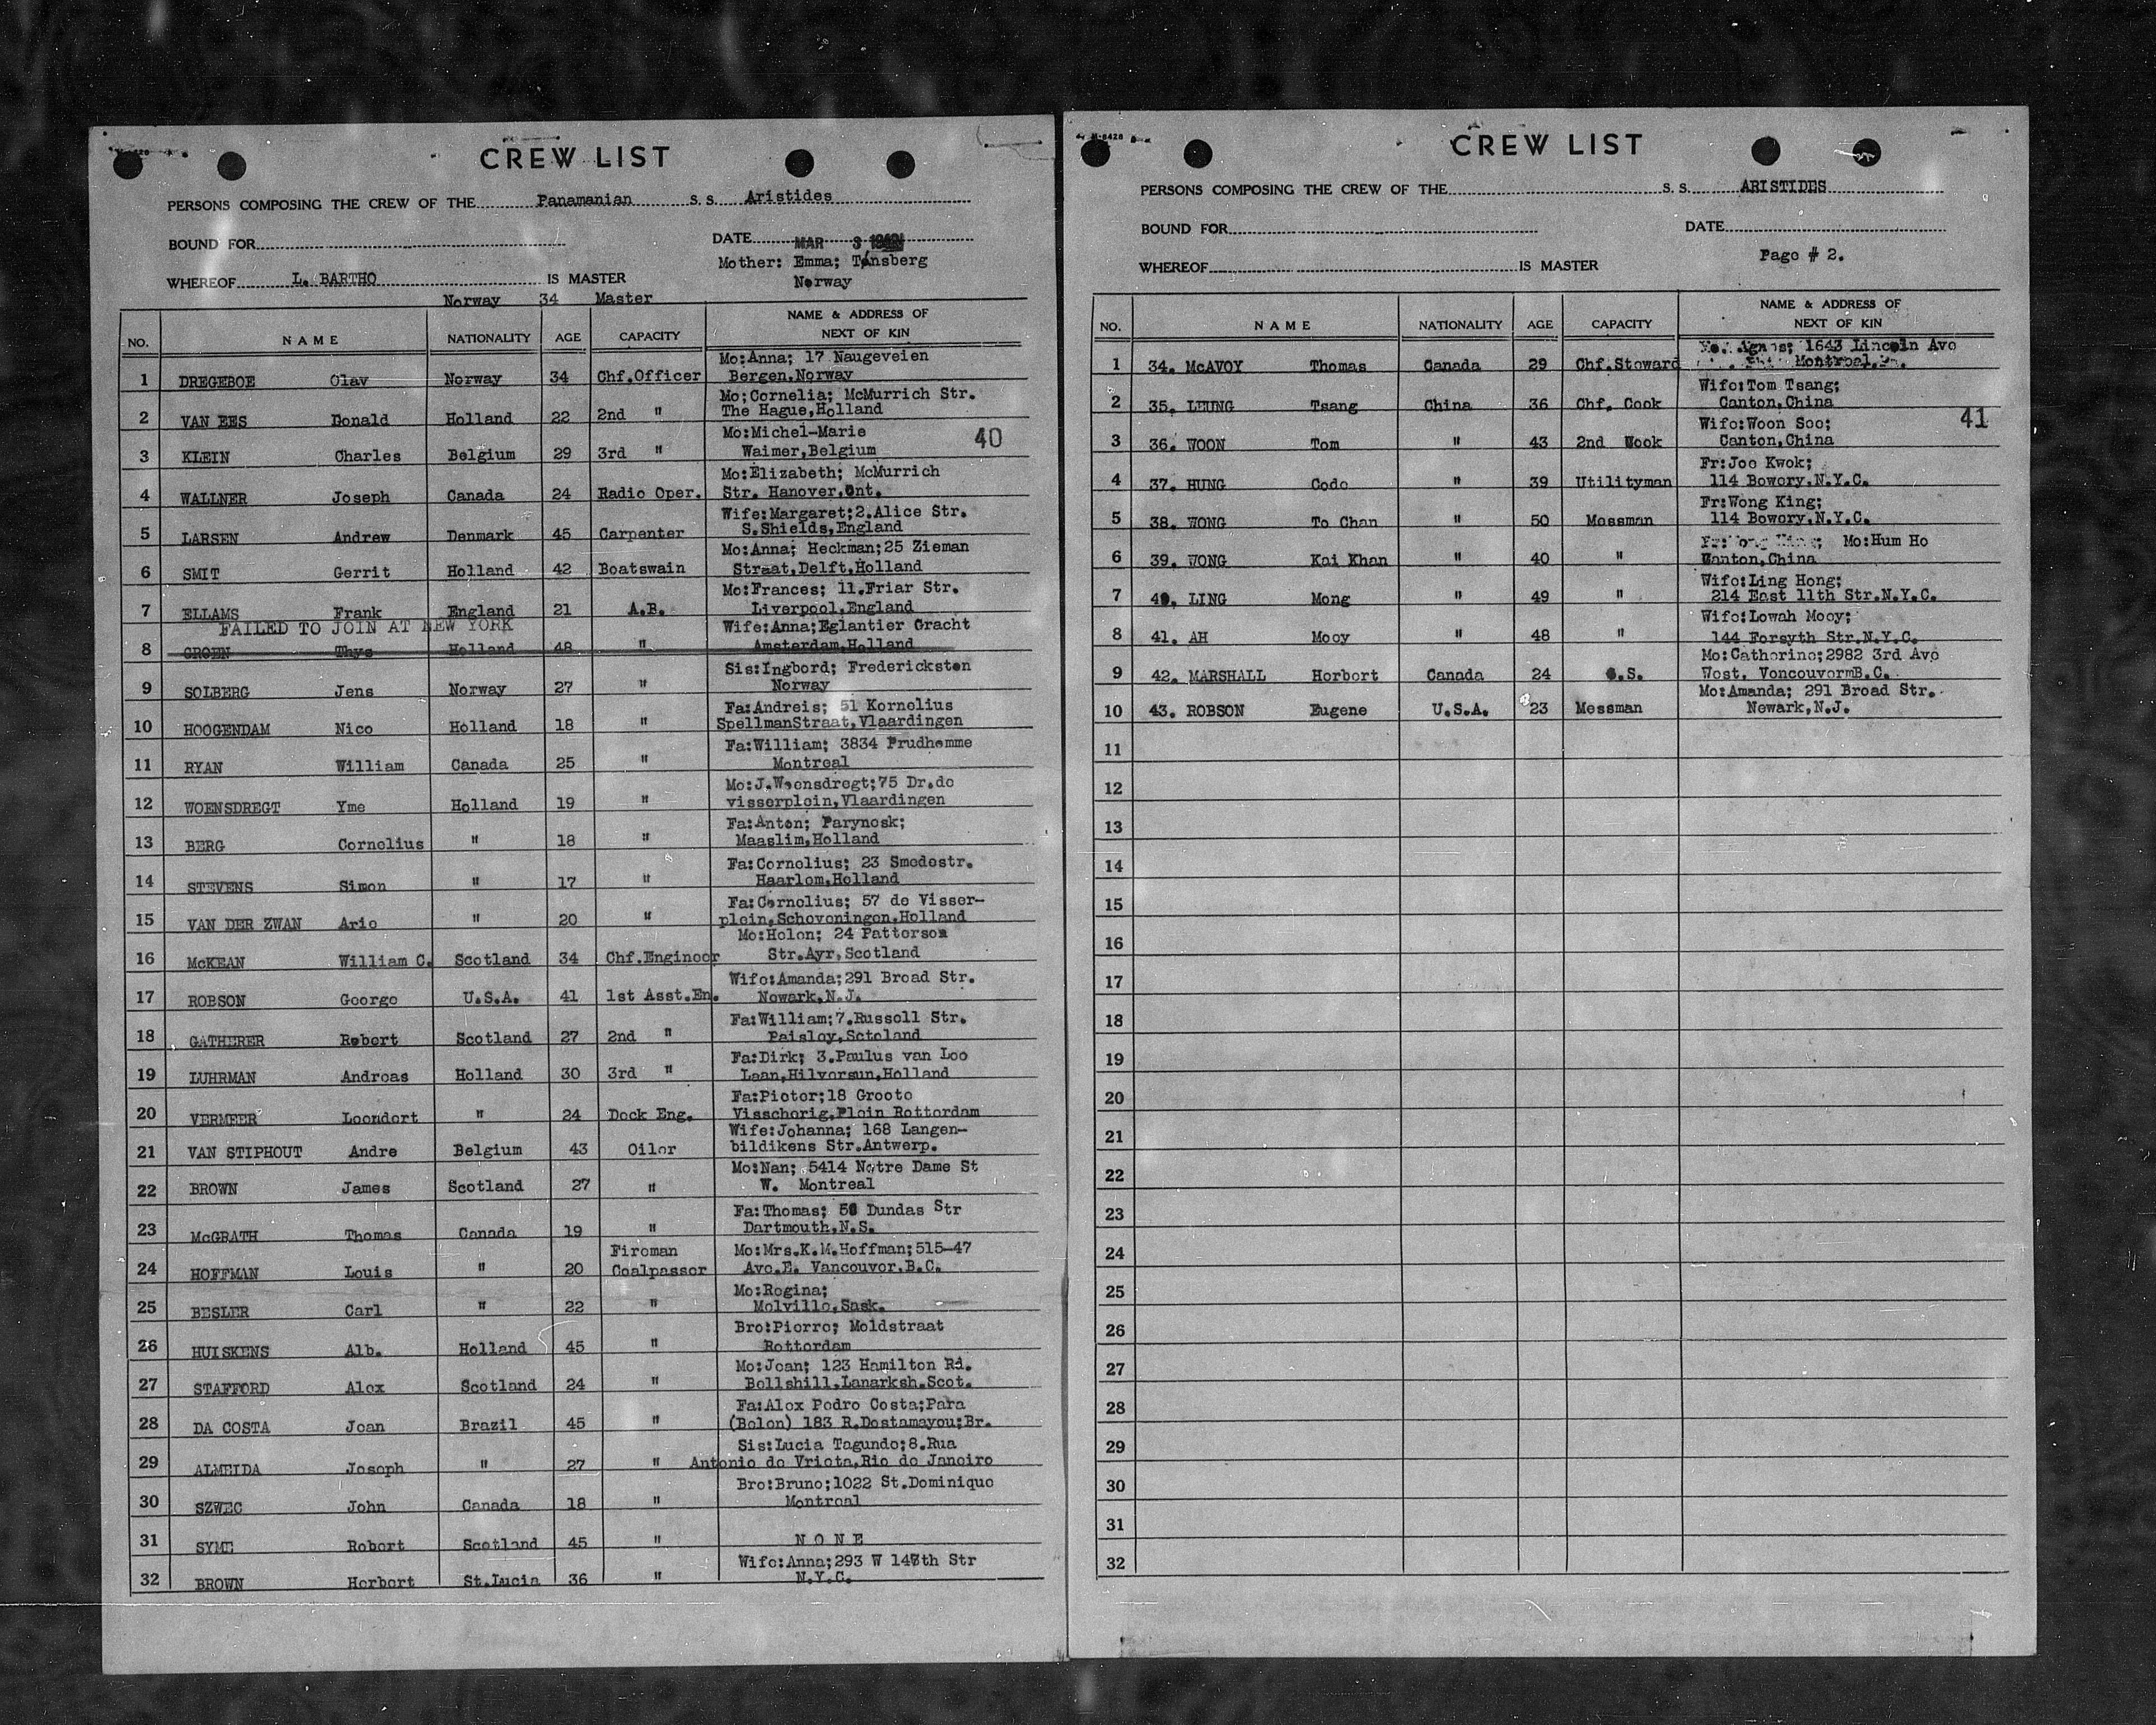 CREW LIST
PERSONS COMPOSING THE CREW OF THE Panamanian S. S. Aristides
BOUND FOR
DATE MAR 3
WHEREOF L. BARTHO IS MASTER
Mother: Emma; Tønsberg
Norway
Norway 34 Master
NO. NAME NATIONALITY AGE CAPACITY NAME & ADDRESS OF NEXT OF KIN
Mo:Anna; 17 Naugeveien
1 DREGEBOE Olav Norway 34 Chf.Officer Bergen.Norway
Mo;Cornelia; McMurrich Str.
2 VAN EES Donald Holland 22 2nd " The Hague,Holland
Mo:Michel-Marie 40
3 KLEIN Charles Belgium 29 3rd " Waimer,Belgium
Mo:Elizabeth; McMurrich
4 WALLNER Joseph Canada 24 Radio Oper. Str. Hanover.Ont.
Wife:Margaret;2.Alice Str.
5 LARSEN Andrew Denmark 45 Carpenter S.Shields,England
Mo:Anna; Heckman;25 Zieman
6 SMIT Gerrit Holland 42 Boatswain Straat,Delft,Holland
Mo:Frances; 11.Friar Str.
7 ELLAMS Frank England 21 A.B. Liverpool.England
FAILED TO JOIN AT NEW YORK Wife:Anna;Eglantier Gracht
8 GROEN Thys Holland 48 " Amsterdam,Holland
Sis:Ingbord; Fredericksten
9 SOLBERG Jens Norway 27 " Norway
Fa:Andreis; 51 Kornelius
10 HOOGENDAM Nico Holland 18 " SpellmanStraat,Vlaardingen
Fa:William; 3834 Prudhomme
11 RYAN William Canada 25 " Montreal
Mo:J.Woensdregt;75 Dr.de
12 WOENSDREGT Yme Holland 19 " visserplein,Vlaardingen
Fa:Anton; Parynosk;
13 BERG Cornelius " 18 " Maaslim,Holland
Fa:Cornelius; 23 Smedestr.
14 STEVENS Simon " 17 " Haarlem,Holland
Fa:Cornelius; 57 de Visser-
15 VAN DER ZWAN Arie " 20 " plein,Scheveningen.Holland
Mo:Helen; 24 Patterson
16 McKEAN William C. Scotland 34 Chf.Engineer Str.Ayr,Scotland
Wife:Amanda;291 Broad Str.
17 ROBSON George U.S.A. 41 1st Asst.En. Newark,N.J.
Fa:William;7.Russell Str.
18 GATHERER Robert Scotland 27 2nd " Paisley,Sctoland
Fa:Dirk; 3.Paulus van Loo
19 LUHRMAN Andreas Holland 30 3rd " Laan,Hilversun,Holland
Fa:Pieter;18 Groote
20 VERMEER Leendert " 24 Deck Eng. Visscherig.Plein Rotterdam
Wife:Johanna; 168 Langen-
21 VAN STIPHOUT Andre Belgium 43 Oiler bildikens Str.Antwerp.
Mo:Nan; 5414 Notre Dame St
22 BROWN James Scotland 27 " W. Montreal
Fa:Thomas; Dundas Str
23 McGRATH Thomas Canada 19 " Dartmouth,N.S.
Fireman Mo:Mrs.K.M.Hoffman;515-47
24 HOFFMAN Louis " 20 Coalpasser Ave.E. Vancouver.B.C.
Mo:Regina;
25 BESLER Carl " 22 " Melville,Sask.
Bro:Pierre; Moldstraat
26 HUISKENS Alb. Holland 45 " Rotterdam
Mo:Jean; 123 Hamilton Rd.
27 STAFFORD Alex Scotland 24 " Bellshill,Lanarksh.Scot.
Fa:Alex Pedro Costa;Para
28 DA COSTA Jean Brazil 45 " (Belen) 183 R.Dostamayou;Br.
Sis:Lucia Tagundo;8.Rua
29 ALMEIDA Joseph " 27 " Antonio do Vrieta,Rio de Janeiro
Bro:Bruno;1022 St.Dominique
30 SZWEC John Canada 18 " Montreal
31 SYME Robert Scotland 45 " N O N E
Wife:Anna;293 W Str
32 BROWN Herbert St.Lucia 36 " N.Y.C.
CREW LIST
PERSONS COMPOSING THE CREW OF THE S. S. ARISTIDES
BOUND FOR DATE
Page # 2.
WHEREOF IS MASTER
NO. NAME NATIONALITY AGE CAPACITY NAME & ADDRESS OF NEXT OF KIN
1643 Lincoln Ave
1 34. McAVOY Thomas Canada 29 Chf.Steward Montreal.
Wife:Tom Tsang;
2 35. LEUNG Tsang China 36 Chf. Cook Canton,China
Wife:Woon Soo; 41
3 36. WOON Tom " 43 2nd Wook Canton,China
Fr:Joe Kwok;
4 37. HUNG Code " 39 Utilityman 114 Bowery.N.Y.C.
Fr:Wong King;
5 38. WONG To Chan " 50 Messman 114 Bowery.N.Y.C.
Mo:Hum Ho
6 39. WONG Kai Khan " 40 " Wanton,China
Wife:Ling Hong;
7 40. LING Mong " 49 " 214 East 11th Str.N.Y.C.
Wife:Lowah Mooy;
8 41. AH Mooy " 48 " 144 Forsyth Str.N.Y.C.
Mo:Catherine;2982 3rd Ave
9 42. MARSHALL Herbert Canada 24 O.S. West. VancouvermB.C.
Mo:Amanda; 291 Broad Str.
10 43. ROBSON Eugene U.S.A. 23 Messman Newark,N.J.
11
12
13
14
15
16
17
18
19
20
21
22
23
24
25
26
27
28
29
30
31
32